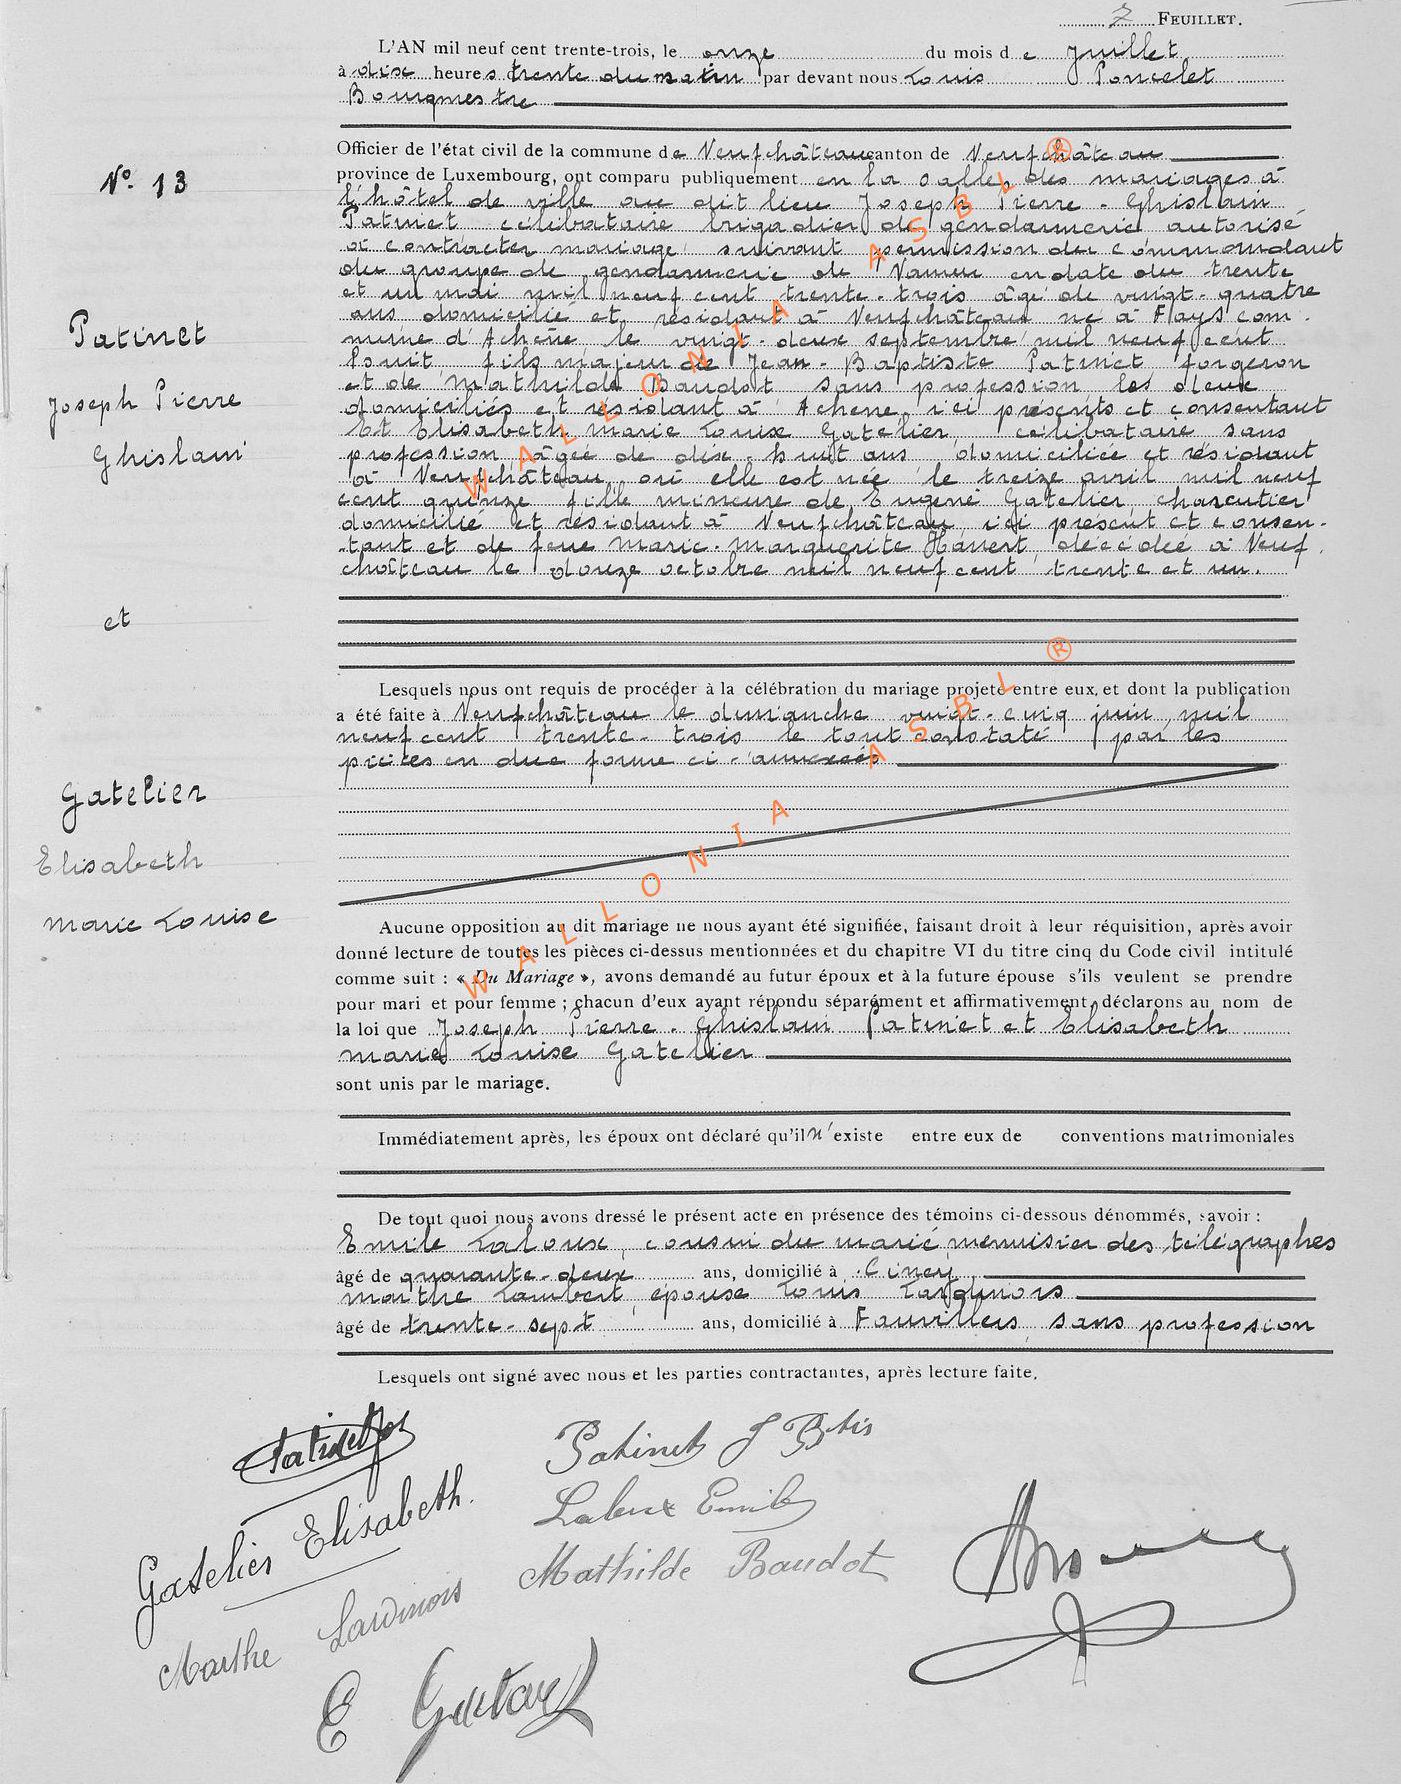 7 FEUILLET.
L'AN mil neuf cent trente-trois, le onze du mois de Juillet
à dix heures trente du matin par devant nous Louis Poncelet
Bourgmestre
Officier de l'état civil de la commune de Neufchâteau canton de Neufchâteau
province de Luxembourg, ont comparu publiquement en la salle des mariages à
l'hôtel de ville au dit lieu Joseph Pierre-Ghislain
Patinet célibataire brigadier de gendarmerie autorisé
à contracter mariage suivant permission du commandant
du groupe de gendarmerie de Namur en date du trente
et un mai mil neuf cent trente-trois âgé de vingt-quatre
ans domicilié et résidant à Neufchâteau né à Fays com-
mune d'Achêne le vingt-deux septembre mil neuf cent
huit fils majeur de Jean-Baptiste Patinet forgeron
et de Mathilde Baudot sans profession les deux
domiciliés et résidant à Achene, ici présents et consentant
Et Elisabeth Marie Louise Gatelier, célibataire sans
profession âgée de dix-huit ans domiciliée et résidant
à Neufchâteau où elle est née le treize avril mil neuf
cent quinze fille mineure de Eugene Gatelier charcutier
domicilié et résidant à Neufchâteau ici présent et consen-
tant et de feue Marie-Marguerite décédée à Neuf
château le douze octobre mil neuf cent trente et un.
Lesquels nous ont requis de procéder à la célébration du mariage projeté entre eux, et dont la publication
a été faite à Neufchâteau le dimanche vingt-cinq juin mil
neuf cent trente-trois le tout constaté par les
pièces en due forme ci-annexées
Aucune opposition au dit mariage ne nous ayant été signifiée, faisant droit à leur réquisition, après avoir
donné lecture de toutes les pièces ci-dessus mentionnées et du chapitre VI du titre cinq du Code civil intitulé
comme suit : « Du Mariage », avons demandé au futur époux et à la future épouse s'ils veulent se prendre
pour mari et pour femme ; chacun d'eux ayant répondu séparément et affirmativement, déclarons au nom de
la loi que Joseph Pierre-Ghislain Patinet et Elisabeth
Marie Louise Gatelier
sont unis par le mariage.
Immédiatement après, les époux ont déclaré qu'il n'existe entre eux de conventions matrimoniales
De tout quoi nous avons dressé le présent acte en présence des témoins ci-dessous dénommés, savoir :
Emile Laloux, cousin du marié, menuisier des télégraphes
âgé de quarante-deux ans, domicilié à Ciney
Marthe Lambert, épouse Louis Lardinois
âgé de trente-sept ans, domicilié à Fauvillers, sans profession
Lesquels ont signé avec nous et les parties contractantes, après lecture faite.
N° 13
Patinet
Joseph Pierre
Ghislain
et
Gatelier
Elisabeth
Marie Louise
Patinet J Btis
Gatelier Elisabeth.
Laloux Emile
Mathilde Baudot
Marthe Lardinois
WALLONIA ASBL ®
WALLONIA ASBL ®